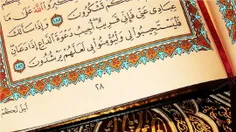 تَشْكُرُونَ ﴿١٨٥﴾ وَإِذَا سَأَلَكَ
عِبَادِى عَنِّى فَإِنِّى قَرِيبٌ أُجِيبُ دَعْوَةَ الدَّاعِ إِذَا دَعَانِ
فَلْيَسْتَجِيبُوا لِى وَلْيُؤْمِنُوا بِى لَعَلَّهُمْ يَرْشُدُونَ ﴿١٨٦﴾
٢٨
أحل لكم